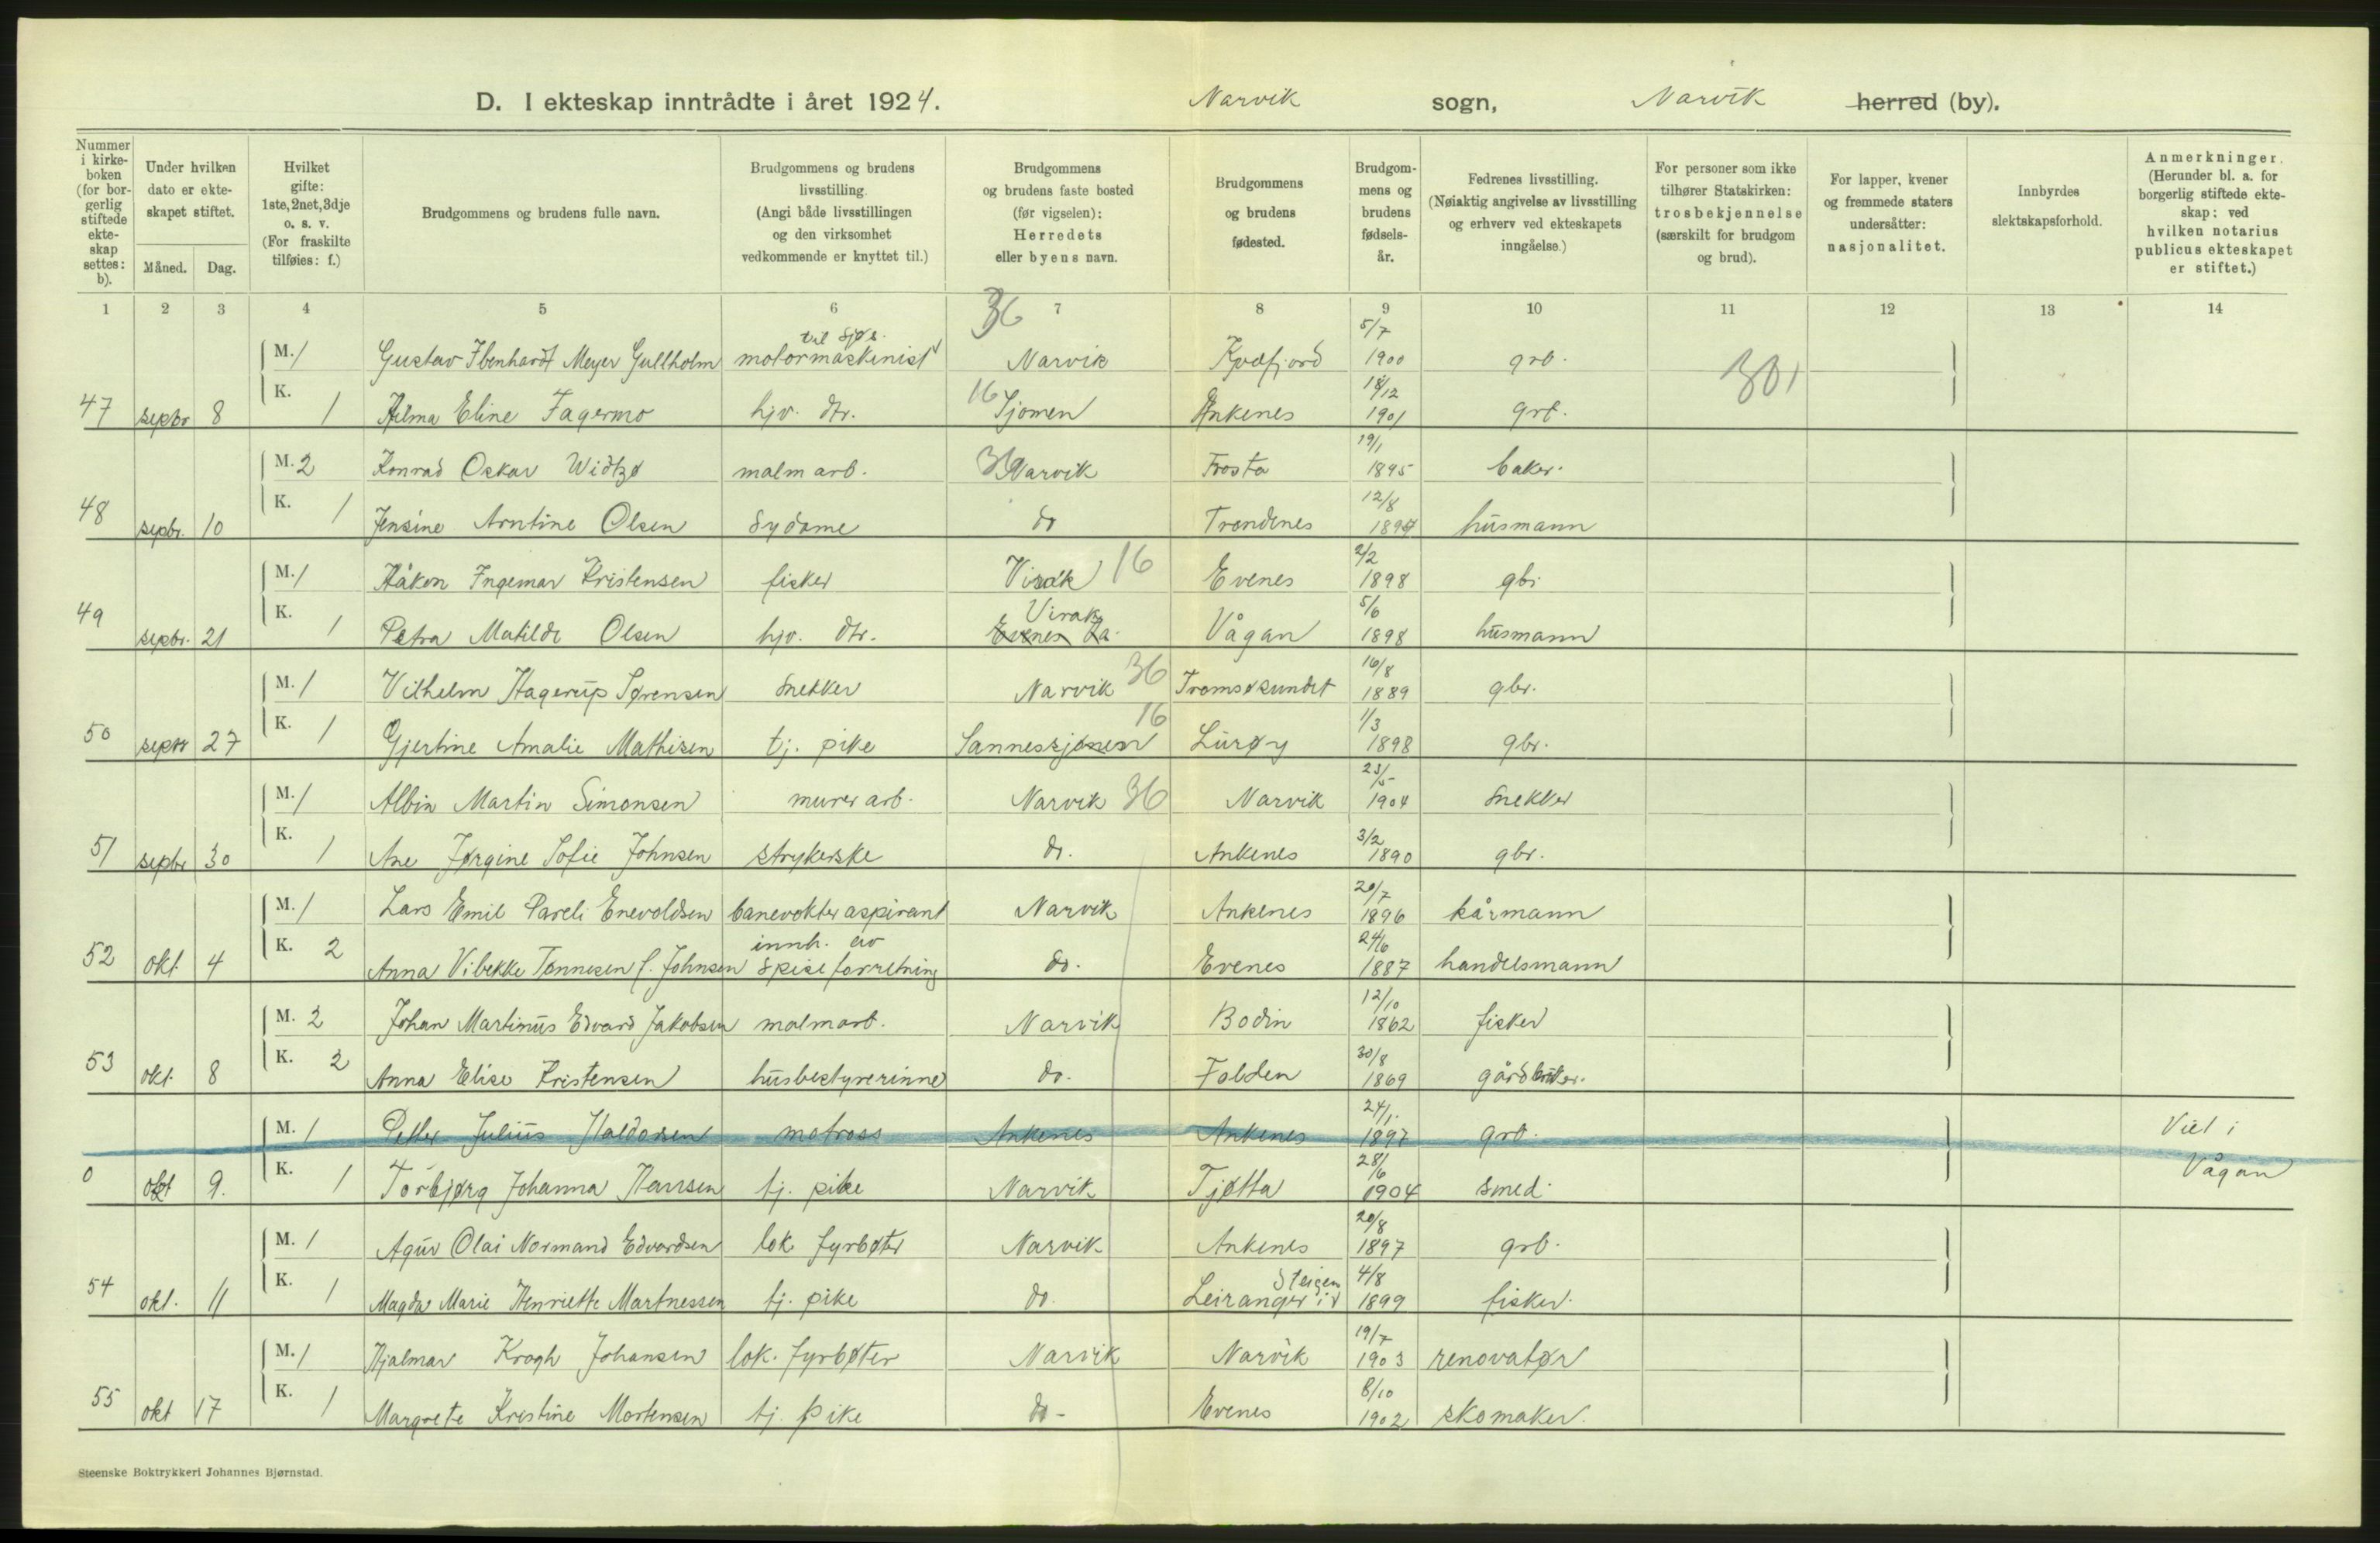 D. I ekteskap inntrådte i året 1924. Narvik sogn, Narvik herred (by).
Nummer i kirkeboken (for borgerlig stiftede ekteskap settes: b).
Under hvilken dato er ekteskapet stiftet.
Måned. Dag.
Hvilket gifte: 1ste, 2net, 3dje o. s. v. (For fraskilte tilføies: f.)
Brudgommens og brudens fulle navn.
Brudgommens og brudens livsstilling. (Angi både livsstillingen og den virksomhet vedkommende er knyttet til.)
Brudgommens og brudens faste bosted (før vigselen): Herredets eller byens navn.
Brudgommens og brudens fødested.
Brudgommens og brudens fødselsår.
Fedrenes livsstilling. (Nøiaktig angivelse av livsstilling og erhverv ved ekteskapets inngåelse.)
For personer som ikke tilhører Statskirken: trosbekjennelse (særskilt for brudgom og brud).
For lapper, kvener og fremmede staters undersåtter: nasjonalitet.
Innbyrdes slektskapsforhold.
Anmerkninger. (Herunder bl. a. for borgerlig stiftede ekteskap: ved hvilken notarius publicus ekteskapet er stiftet.)
1 2 3 4 5 6 7 8 9 10 11 12 13 14
36
M. 1 Gustav Ibenhardt Meyer Gullholm motormaskinist til sjøs. Narvik Kvæfjord 5/7 1900 grb. 301
47 septbr 8 K. 1 Hilma Eline Fagermo hjv. dtr. 16 Sjomen Ankenes 18/12 1901 grb.
M. 2 Konrad Oskar Widtzø malmarb. 36 Narvik Frosta 19/1 1895 baker.
48 septbr. 10 K. 1 Jensine Arntine Olsen Sydame do Trondenes 12/8 1894 husmann
M. 1 Håkon Ingemar Kristensen fisker Virak 16 Evenes 2/2 1898 gbr
49 septbr. 21 K. 1 Petra Matilde Olsen hjv. dtr. Virak Evenes Vågan 5/6 1898 husmann
M. 1 Vilhelm Hagerup Sørensen Snekker Narvik 36 Tromsøsundet 16/8 1889 gbr.
50 septbr 27 K. 1 Gjertine Amalie Mathisen tj. pike Sannessjøen 16 Lurøy 1/3 1898 gbr.
M. 1 Albin Martin Simonsen murerarb. Narvik 36 Narvik 23/5 1904 Snekker
51 septbr 30 K. 1 Ane Jørgine Sofie Johnsen strykerske do. Ankenes 3/2 1890 gbr.
M. 1 Lars Emil Pareli Enevoldsen banevokter aspirant Narvik Ankenes 20/7 1896 kårmann
52 okt. 4 K. 2 Anna Vibekke Tønnesen f. Johnsen innh. av Spiseforretning do. Evenes 24/6 1887 handelsmann
M. 2 Johan Martinus Edvard Jakobsen malmarb. Narvik Bodin 12/10 1862 fisker
53 okt. 8 K. 2 Anna Elise Kristensen husbestyrerinne do. Folden 30/8 1869 gårdbruker.
M. 1 Petter Julius Haldorsen matross Ankenes Ankenes 24/1. 1897 grb. Viet i
0 okt 9. K. 1 Torbjørg Johanna Hansen tj. pike Narvik Tjøtta 28/6 1904 smed Vågan
M. 1 Agur Olai Normand Edvardsen lok fyrbøter Narvik Ankenes 20/8 1897 grb.
54 okt. 11 K. 1 Magda Marie Henriette Martnessen tj. pike do. Leiranger i Steigen 4/8 1899 fisker.
M. 1 Hjalmar Krogh Johansen lok. fyrbøter Narvik Narvik 19/7 1903 renovatør
55 okt 17 K. 1 Margrete Kristine Mortensen tj. pike do - Evenes 8/10 1902 skomaker.
Steenske Boktrykkeri Johannes Bjørnstad.